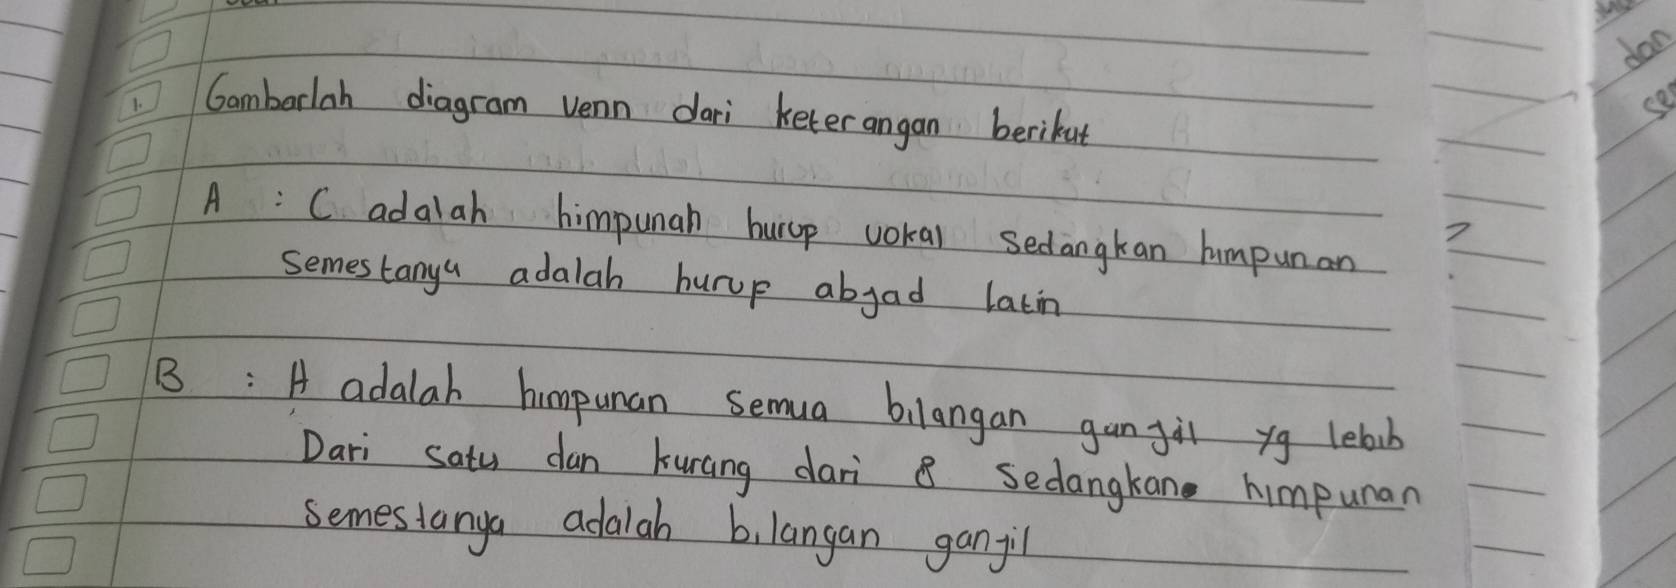 1. Gambarlah diagram venn dari keterangan berikut
A : C adalah himpunan hurup vokal sedangkan himpunan
semestanya adalah hurup abjad latin
B : A adalah himpunan semua bilangan ganjil yg lebih
Dari satu dan kurang dari 8 sedangkan himpunan
semestanya adalah bilangan ganjil
dan